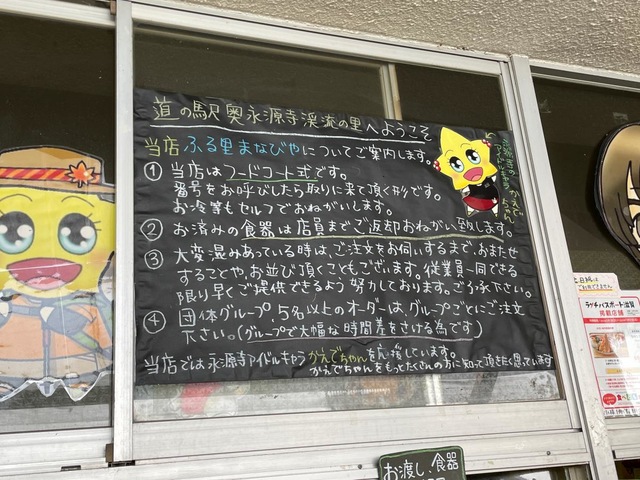 道の駅奥永源寺渓流の里へようこそ
当店ふる里まなびやについてご案内します。
① 当店はフードコート式です。
番号をお呼びしたら取りに来て頂く形です。
お冷等もセルフでおねがいします。
② お済みの食器は店員までご返却おねがい致します。
③ 大変混みあっている時は、ご注文をお伺いするまで、おまたせ
することや、お並び頂くこともございます。従業員一同できる
限り早くご提供できるよう努力しております。ご了承下さい。
④ 団体グループ、5名以上のオーダーは、グループごとにご注文
下さい。(グループで大幅な時間差をさける為です)
当店では永源寺アイドルキャラかえでちゃんを応援しています。
かえでちゃんをもっとたくさんの方に知って頂きたく思っています
ラリチパスポート滋賀
掲載店舗
お渡し、食器